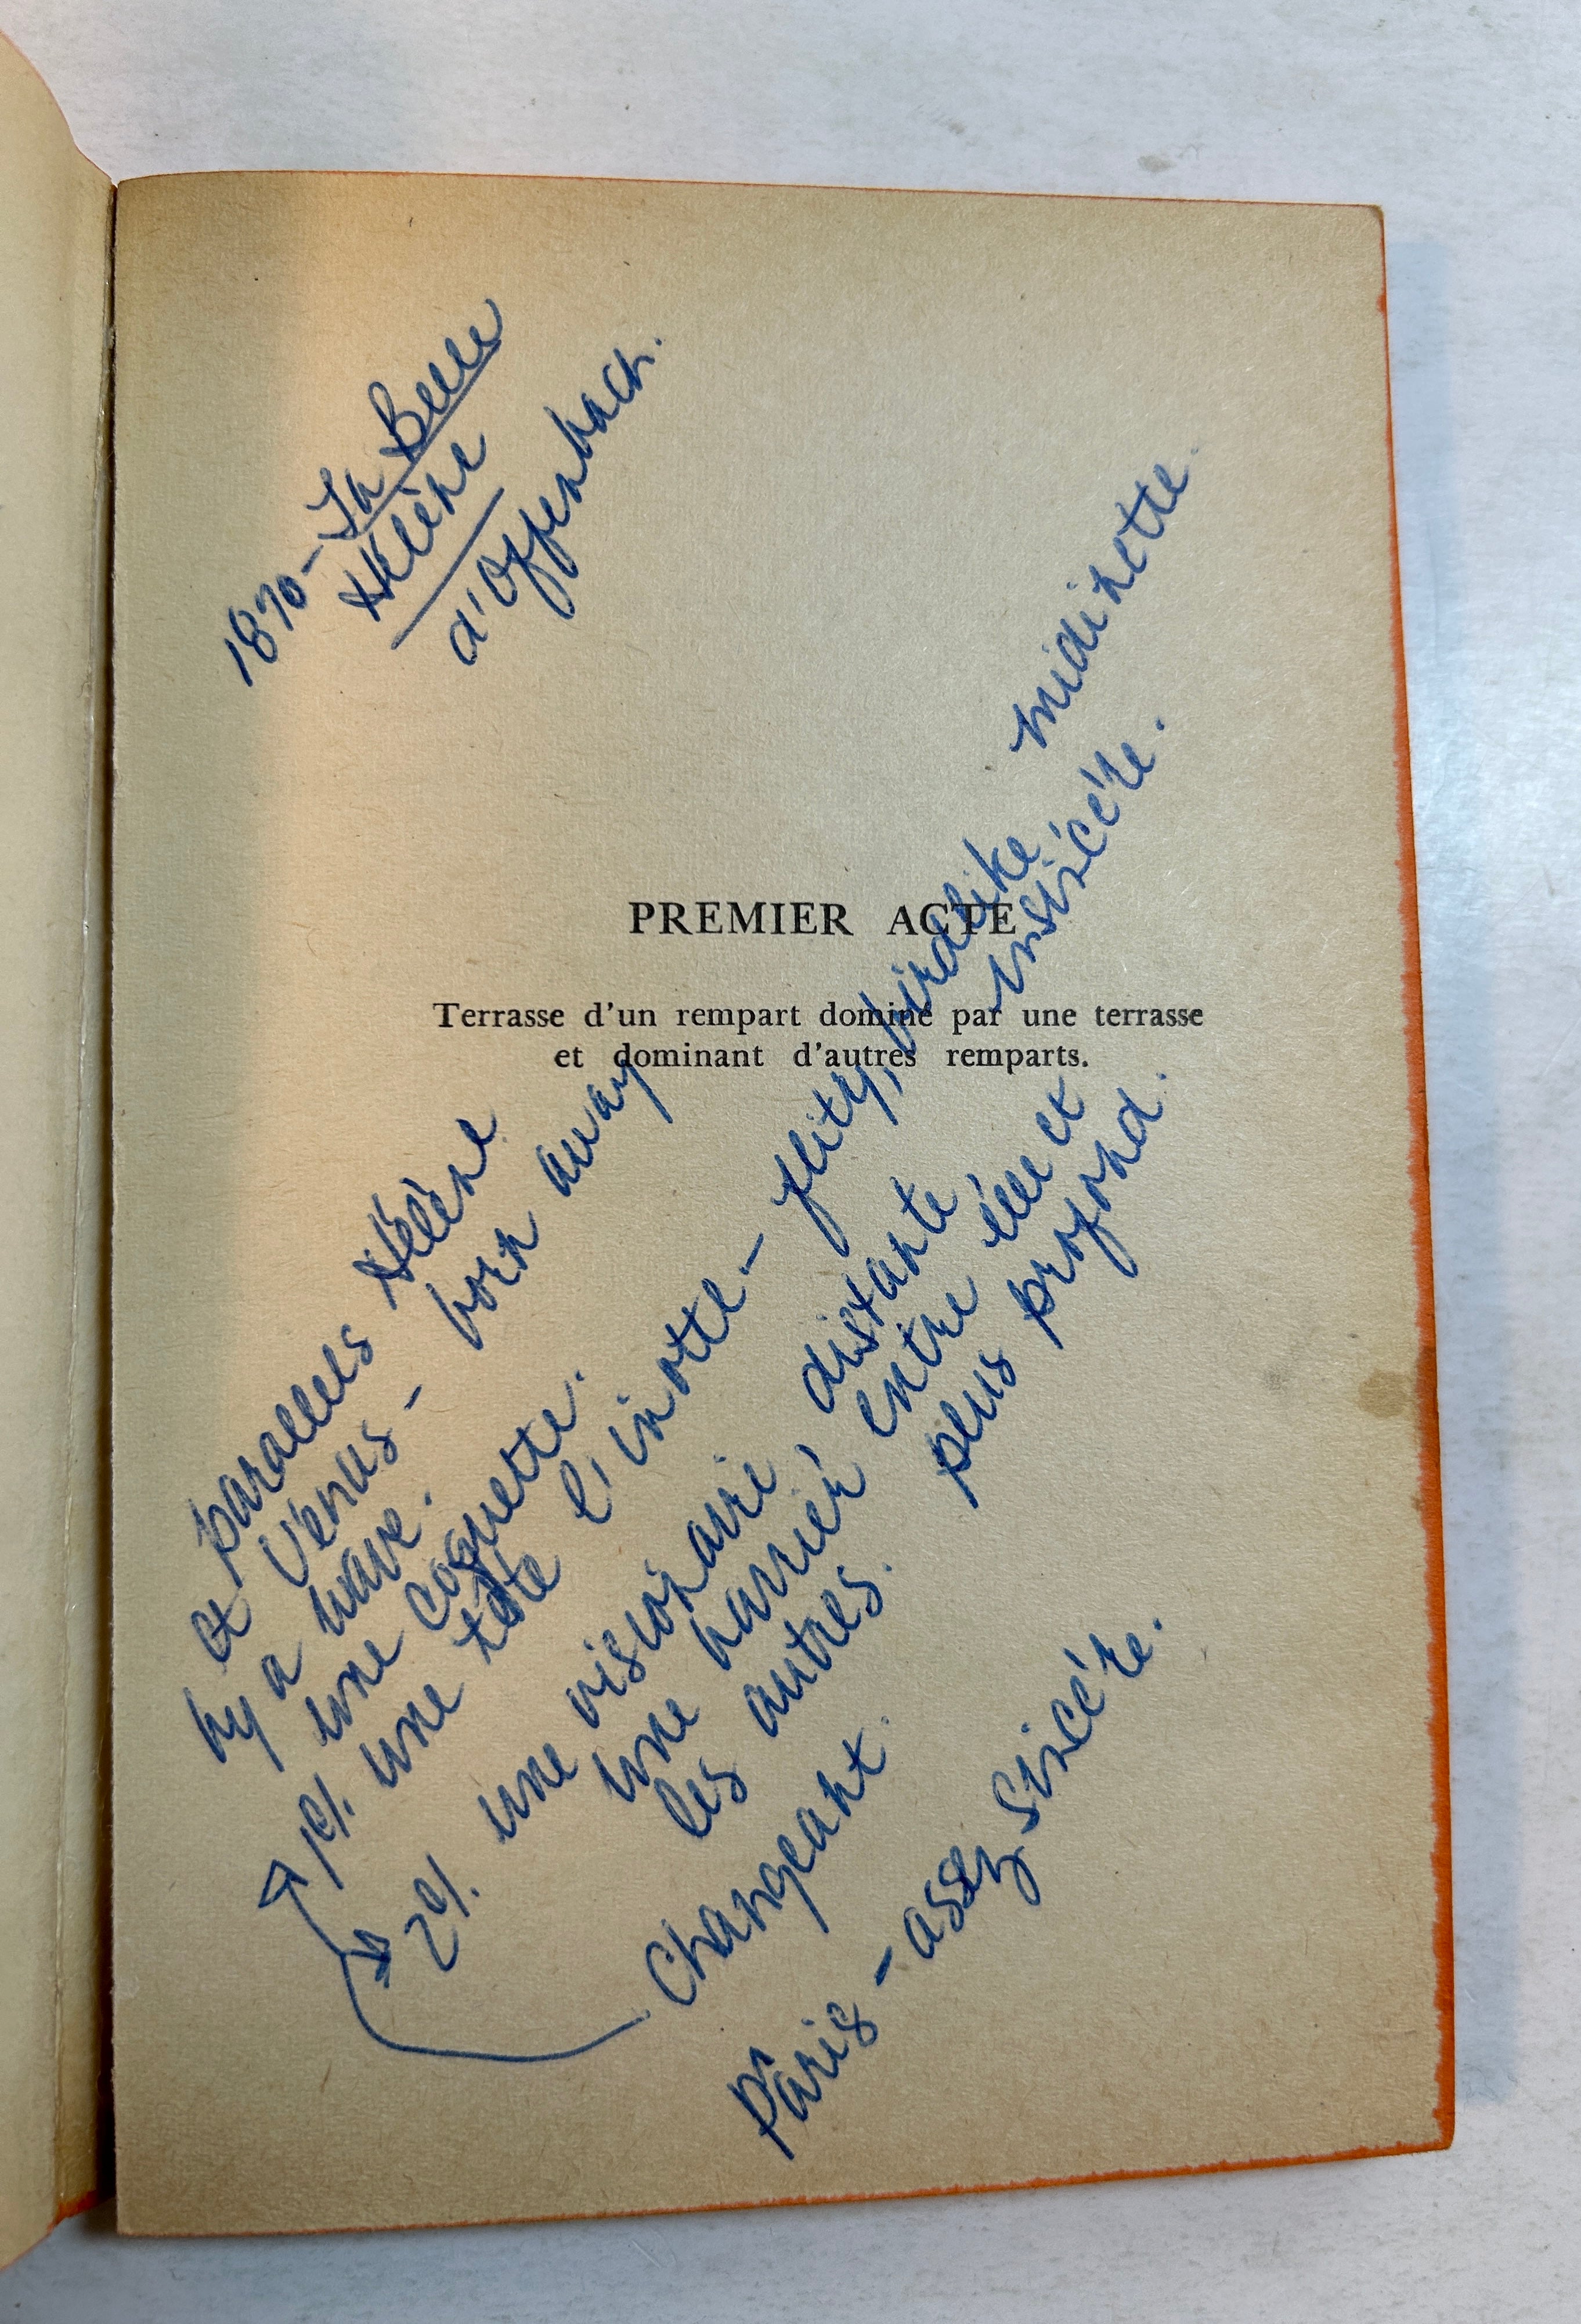 1870 - La Belle
Hélène
d'Offenbach.
PREMIER ACTE
Terrasse d'un rempart dominé par une terrasse
et dominant d'autres remparts.
parallels Hélène
et Venus - born away
by a wave.
une coquette.
1e/. une tête l'inotte - flity, birdlike midinette.
insincére.
2e/. une visionaire distante
une barrier entre elle et
les autres. plus profond.
Changeant.
Pâris - assez sincére.